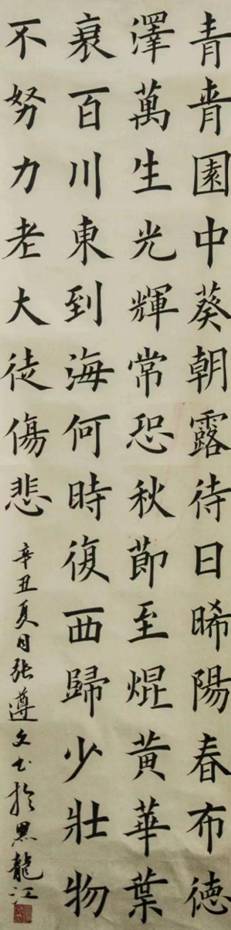 青青園中葵朝露待日晞陽春布德
澤萬生光輝常恐秋節至焜黃華葉
衰百川東到海何時復西歸少壯物
不努力老大徒傷悲
辛丑夏月张遵文书於黑龍江